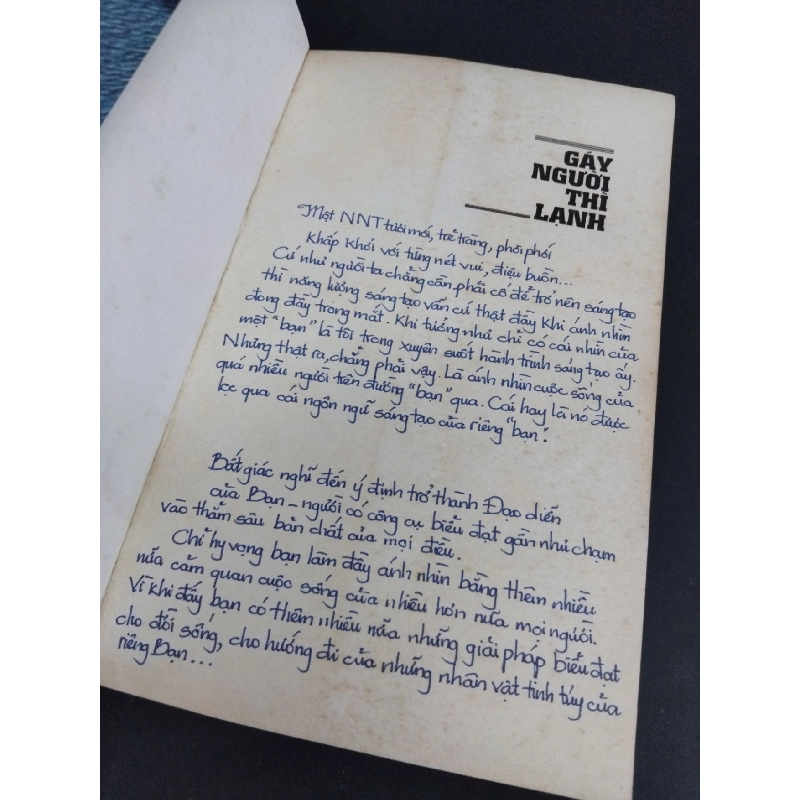 GÁY
NGƯỜI
THÌ
LẠNH
Một NNT tươi mới, trẻ trung, phơi phới
Khấp khởi với từng nét vui, điệu buồn...
Cứ như người ta chẳng cần phải cố để trở nên sáng tạo
thì năng lượng sáng tạo vẫn cứ thật đầy khi ánh nhìn
đong đầy trong mắt. Khi tưởng như chỉ có cái nhìn của
một "bạn" là tôi trong xuyên suốt hành trình sáng tạo ấy.
Nhưng thật ra, chẳng phải vậy. Là ánh nhìn cuộc sống của
quá nhiều người trên đường "bạn" qua. Cái hay là nó được
lọc qua cái ngôn ngữ sáng tạo của riêng "bạn".
Bất giác nghĩ đến ý định trở thành Đạo diễn
của Bạn - người có công cụ biểu đạt gần như chạm
vào thẳm sâu bản chất của mọi điều.
Chỉ hy vọng bạn làm đầy ánh nhìn bằng thêm nhiều
nữa cảm quan cuộc sống của nhiều hơn nữa mọi người.
Vì khi đấy bạn có thêm nhiều nữa những giải pháp biểu đạt
cho đời sống, cho hướng đi của những nhân vật tinh túy của
riêng Bạn...